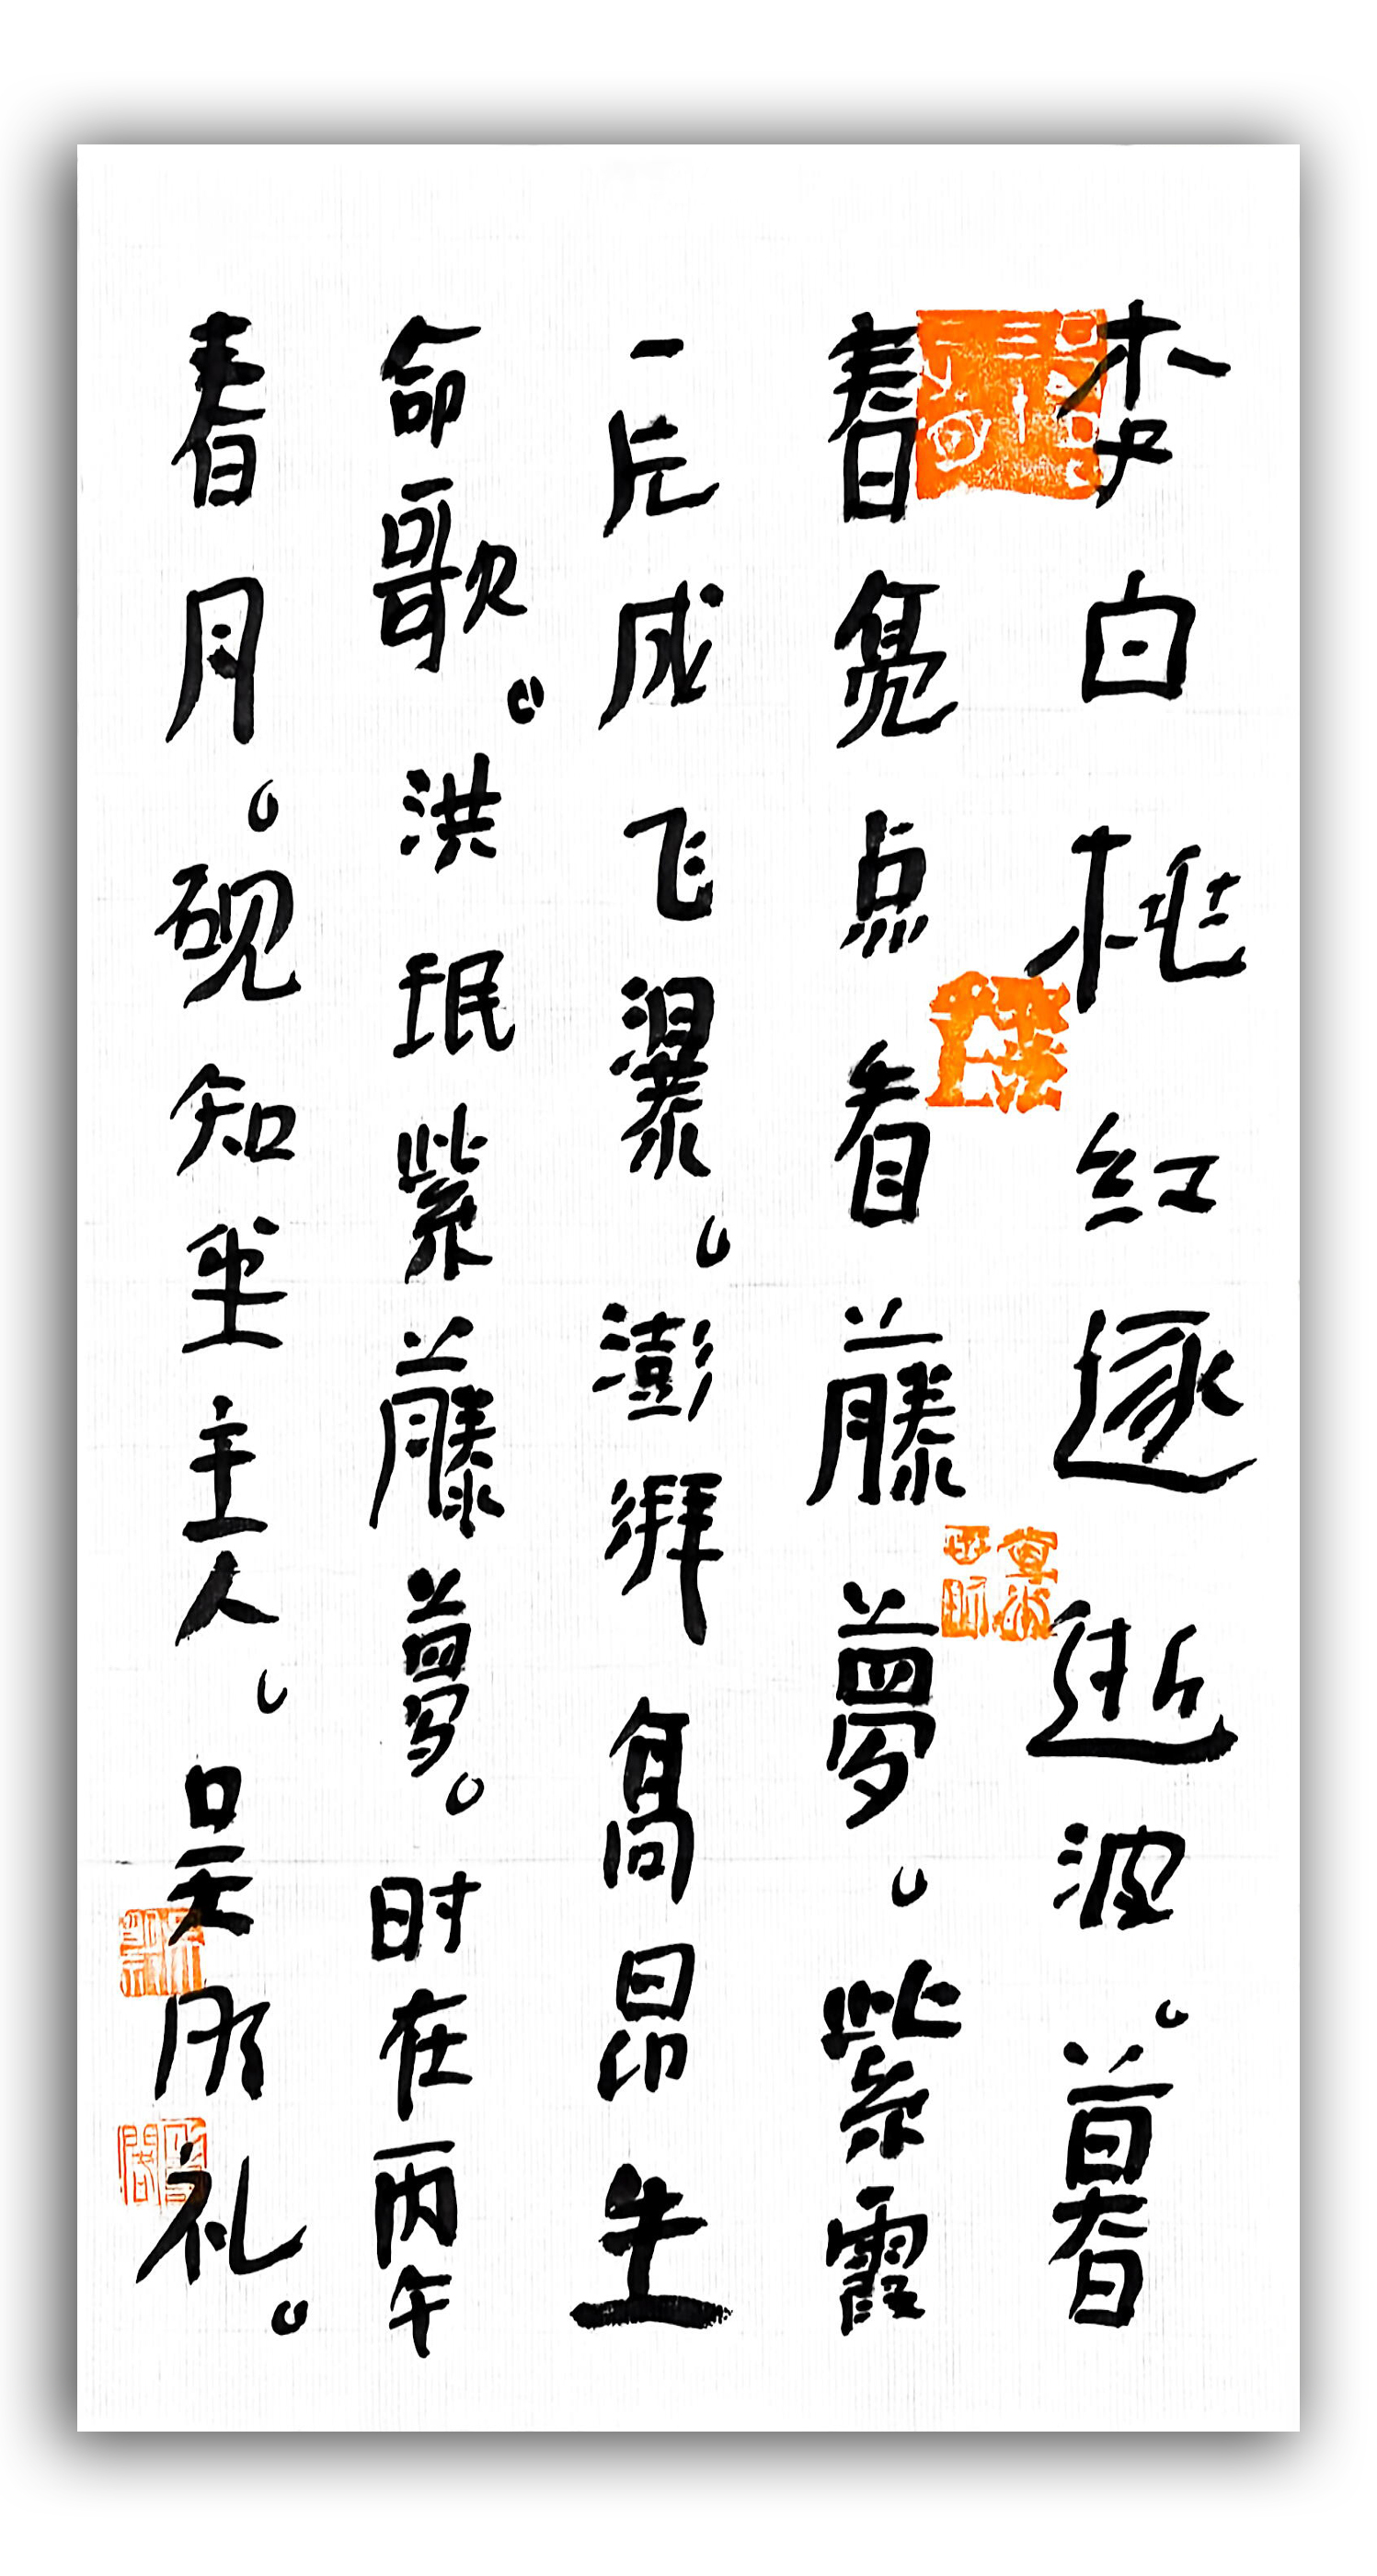 李白桃红逐逝波。暮
春竞点看藤夢。紫霞
一片成飞瀑。澎湃高昂生
命歌。洪珉紫藤夢。时在丙午
春月。砚知坐主人。吴彤礼。